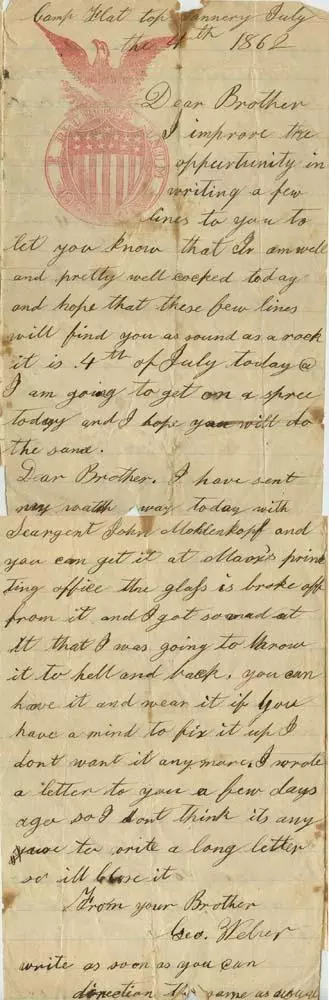 Camp Flat top Tannery July
the 4th 1862
E PLURIBUS UNUM
Dear Brother
I improve the
oppeurtunity in
writing a few
lines to you to
let you know that I am well
and pretty well cocked today
and hope that these few lines
will find you as sound as a rock
it is 4th of July today @
I am going to get on a spree
today and I hope you will do
the same.
Dar Brother. I have sent
my watch way today with
Seargent John Mohlenkopf and
you can get it at Marx's prin
ting office the glass is broke off
from it and I got so mad at
it that I was going to throw
it to hell and back. you can
have it and wear it if you
have a mind to fix it up I
dont want it any more. I wrote
a letter to you a few days
ago so I dont think its any
to orite a long letter
so ill close it
From your Brother
Geo. Weber
write as soon as you can
direction the same as